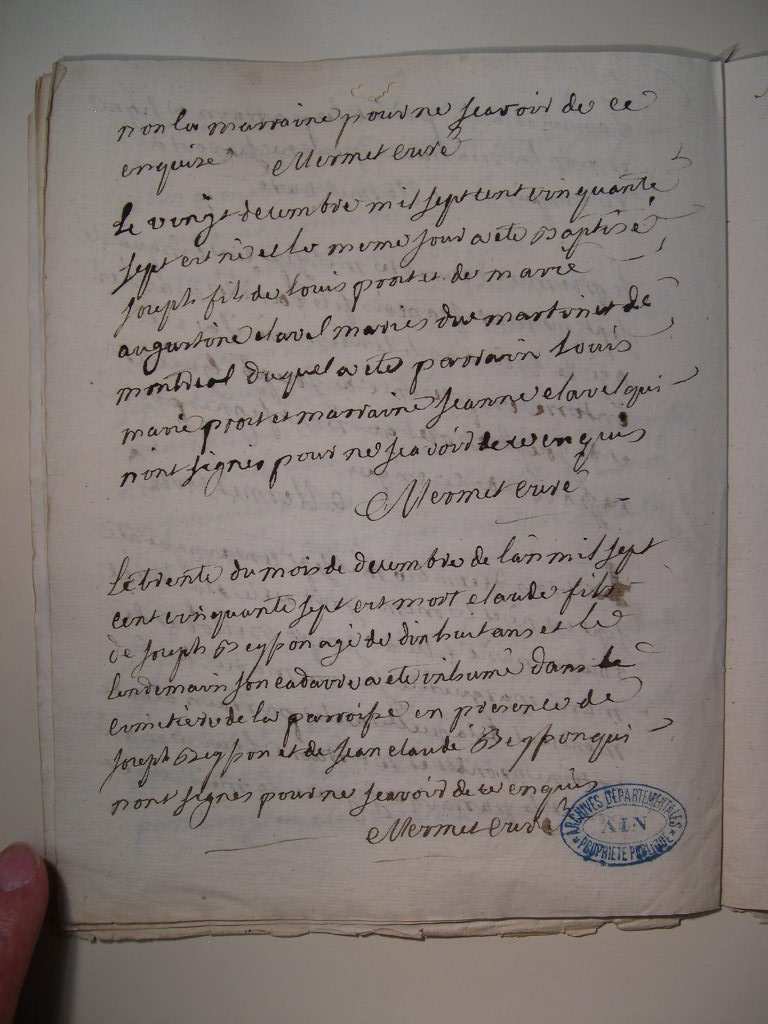 non la marraine pour ne scavoir de ce
enquise Mermet curé
Le vingt decembre mil sept cent cinquante
sept est né et le meme jour a eté Baptisé
joseph fils de louis proit et de marie
augustine clavel mariés du martinet de
montreal duquel a eté parrain louis
marie proit et marraine jeanne clavel qui
nont signés pour ne scavoir de ce enquis
Mermet curé
Le trente du mois de decembre de lan mil sept
cent cinquante sept est mort claude fils
de joseph Beysson agé de dixhuit ans et le
lendemain son cadavre a eté inhumé dans le
cimitière de la parroisse en presence de
joseph Beysson et de jean claude Beysson qui
nont signés pour ne scavoir de ce enquis
Mermet curé
ARCHIVES DÉPARTEMENTALES
AIN
PROPRIÉTÉ PUBLIQUE